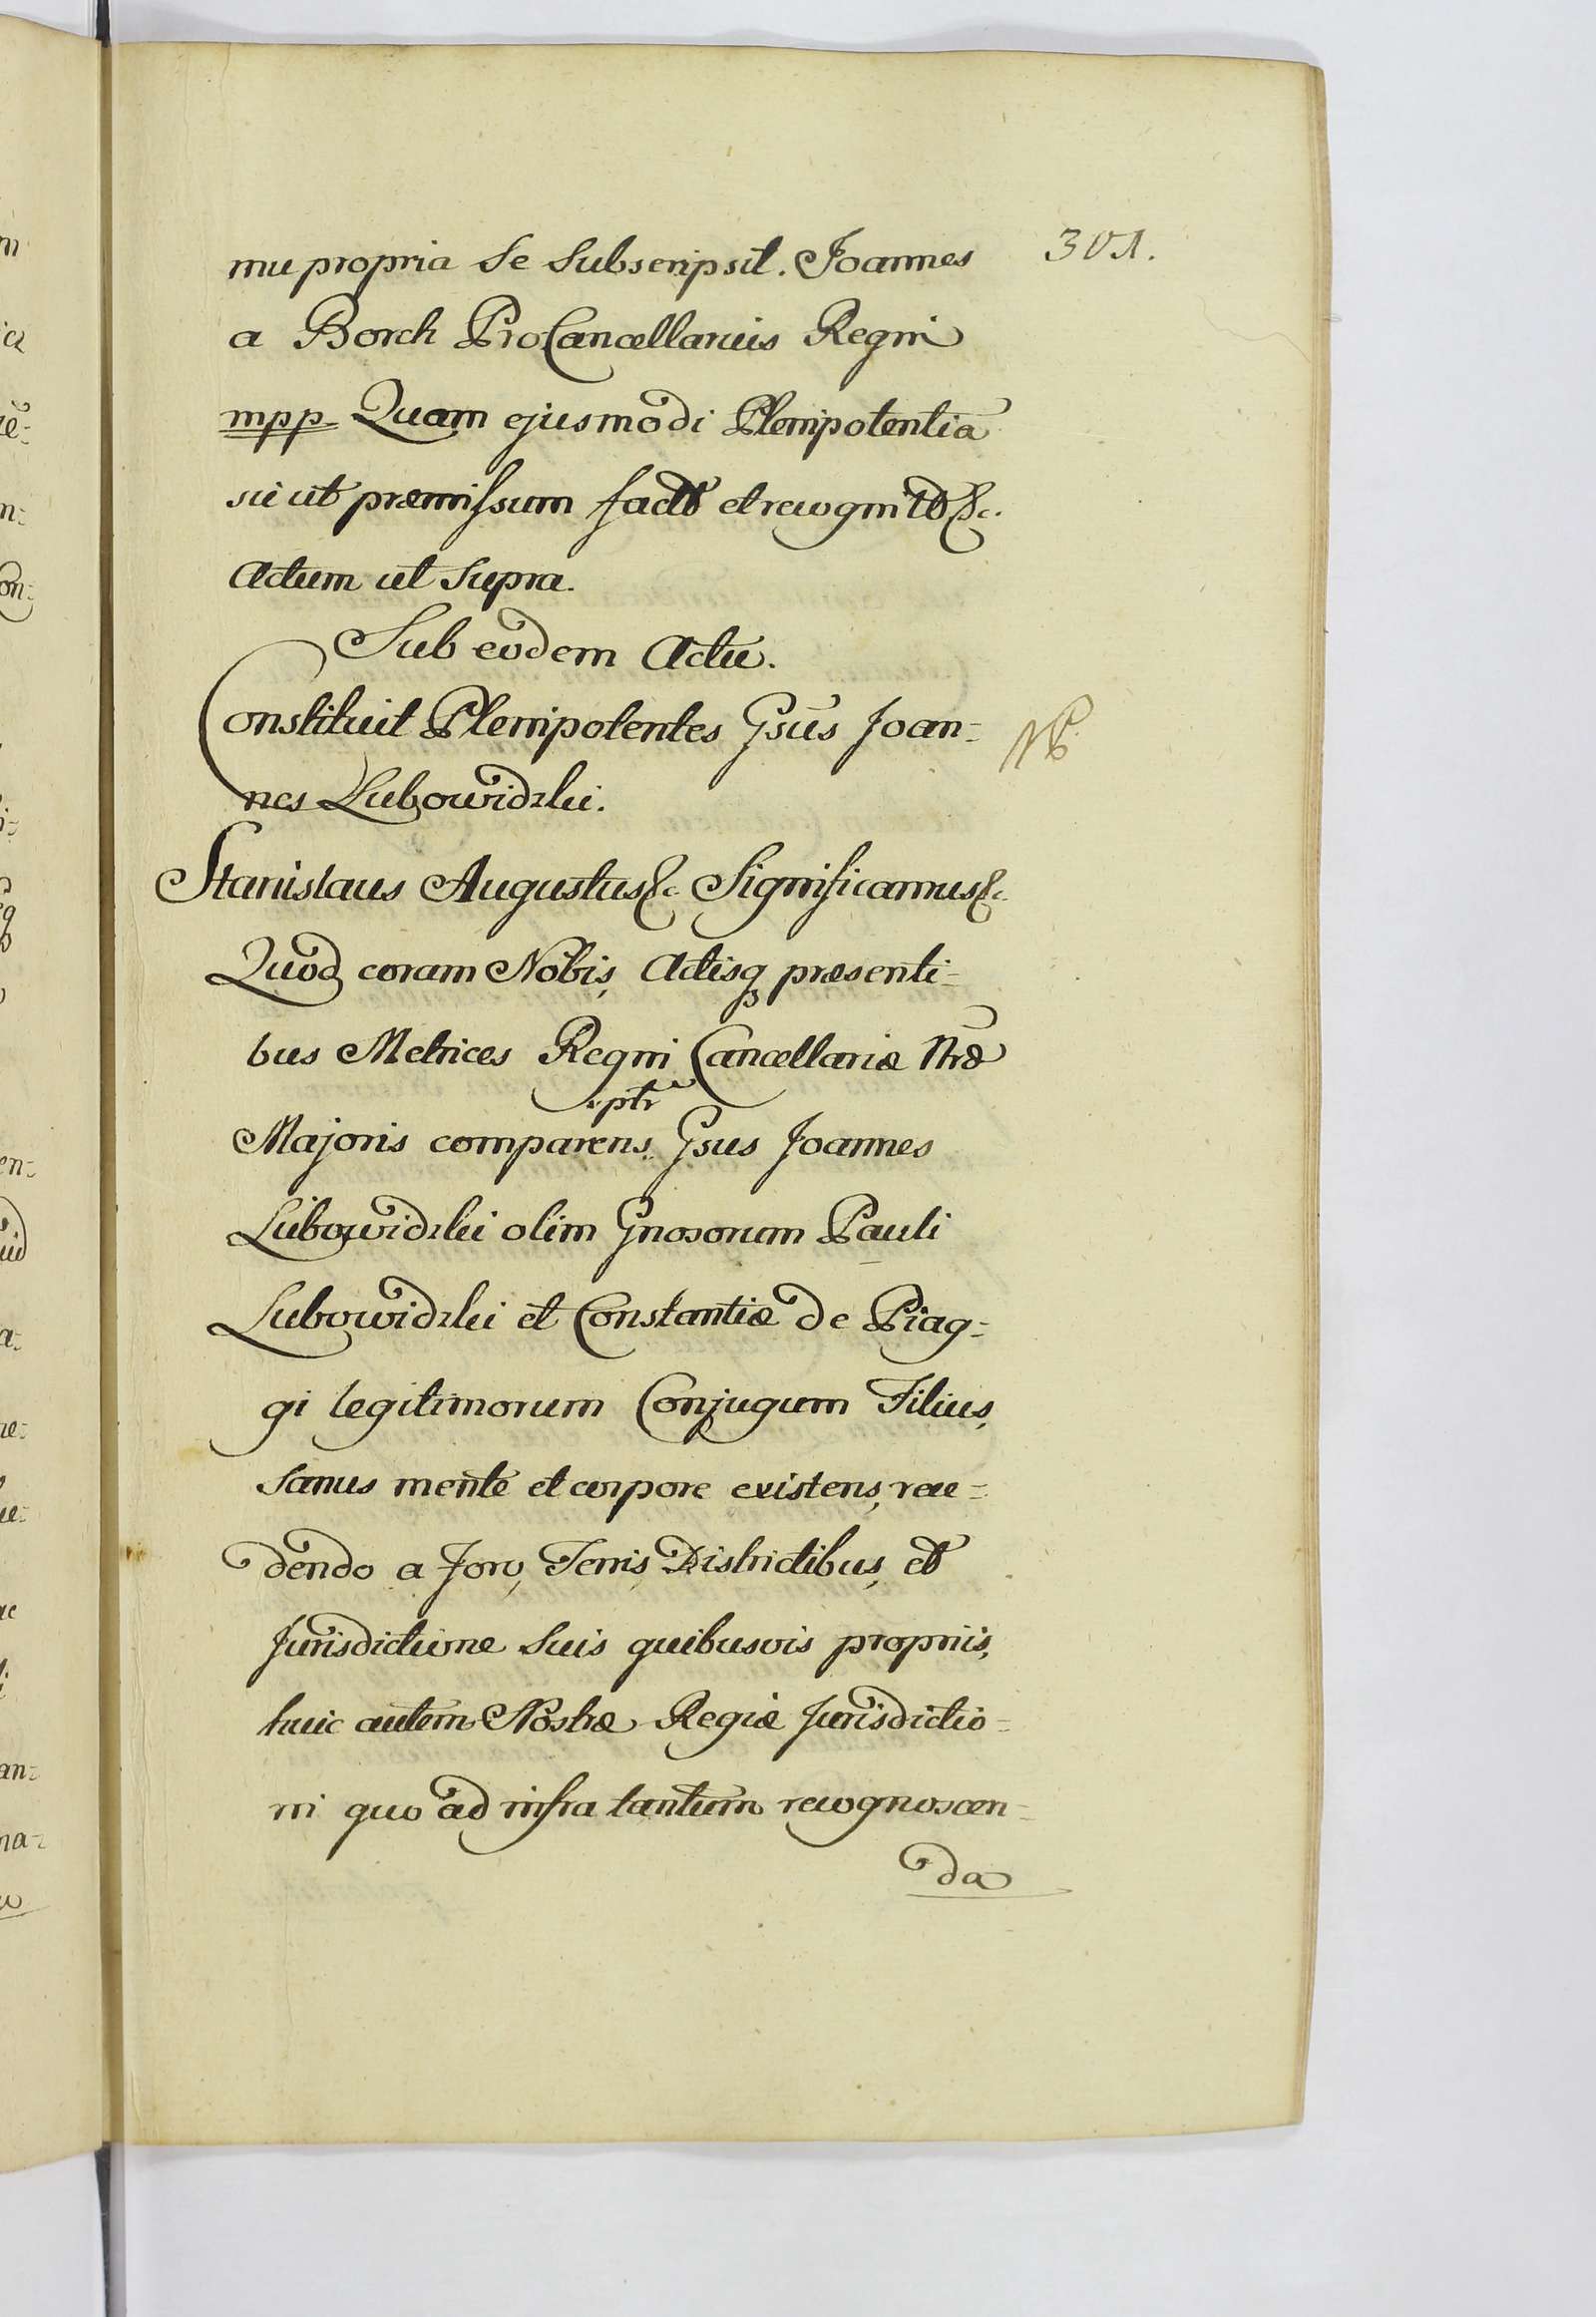 301.
mu propria Se Subscripsit. Joannes
a Borch ProCancellarius Regni
mpp. Quam ejusmodi Plenipotentiã
sic ut præmissum factt et recognitt &c.
Actum ut Supra.
Sub eodem Actu.
Constituit Plenipotentes Gsũs Joan=
nes Lubowidzki.
Stanislaus Augustus &c. Significamus &c.
Quod coram Nobis, Actisq præsenti=
bus Metrices Regni Cancellariæ Nræ
ptr
Majoris comparens Gsus Joannes
Lubowidzki olim Gnosorum Pauli
Lubowidzki et Constantiæ de Piag=
gi legitimorum Conjugum Filius,
Sanus mente et corpore existens, rece=
dendo a Foro, Terris, Districtibus, et
Jurisdictione Suis quibusvis propriis,
huic autem Nostræ Regiæ Jurisdictio=
ni quo ad infra tantum recognoscen=
da